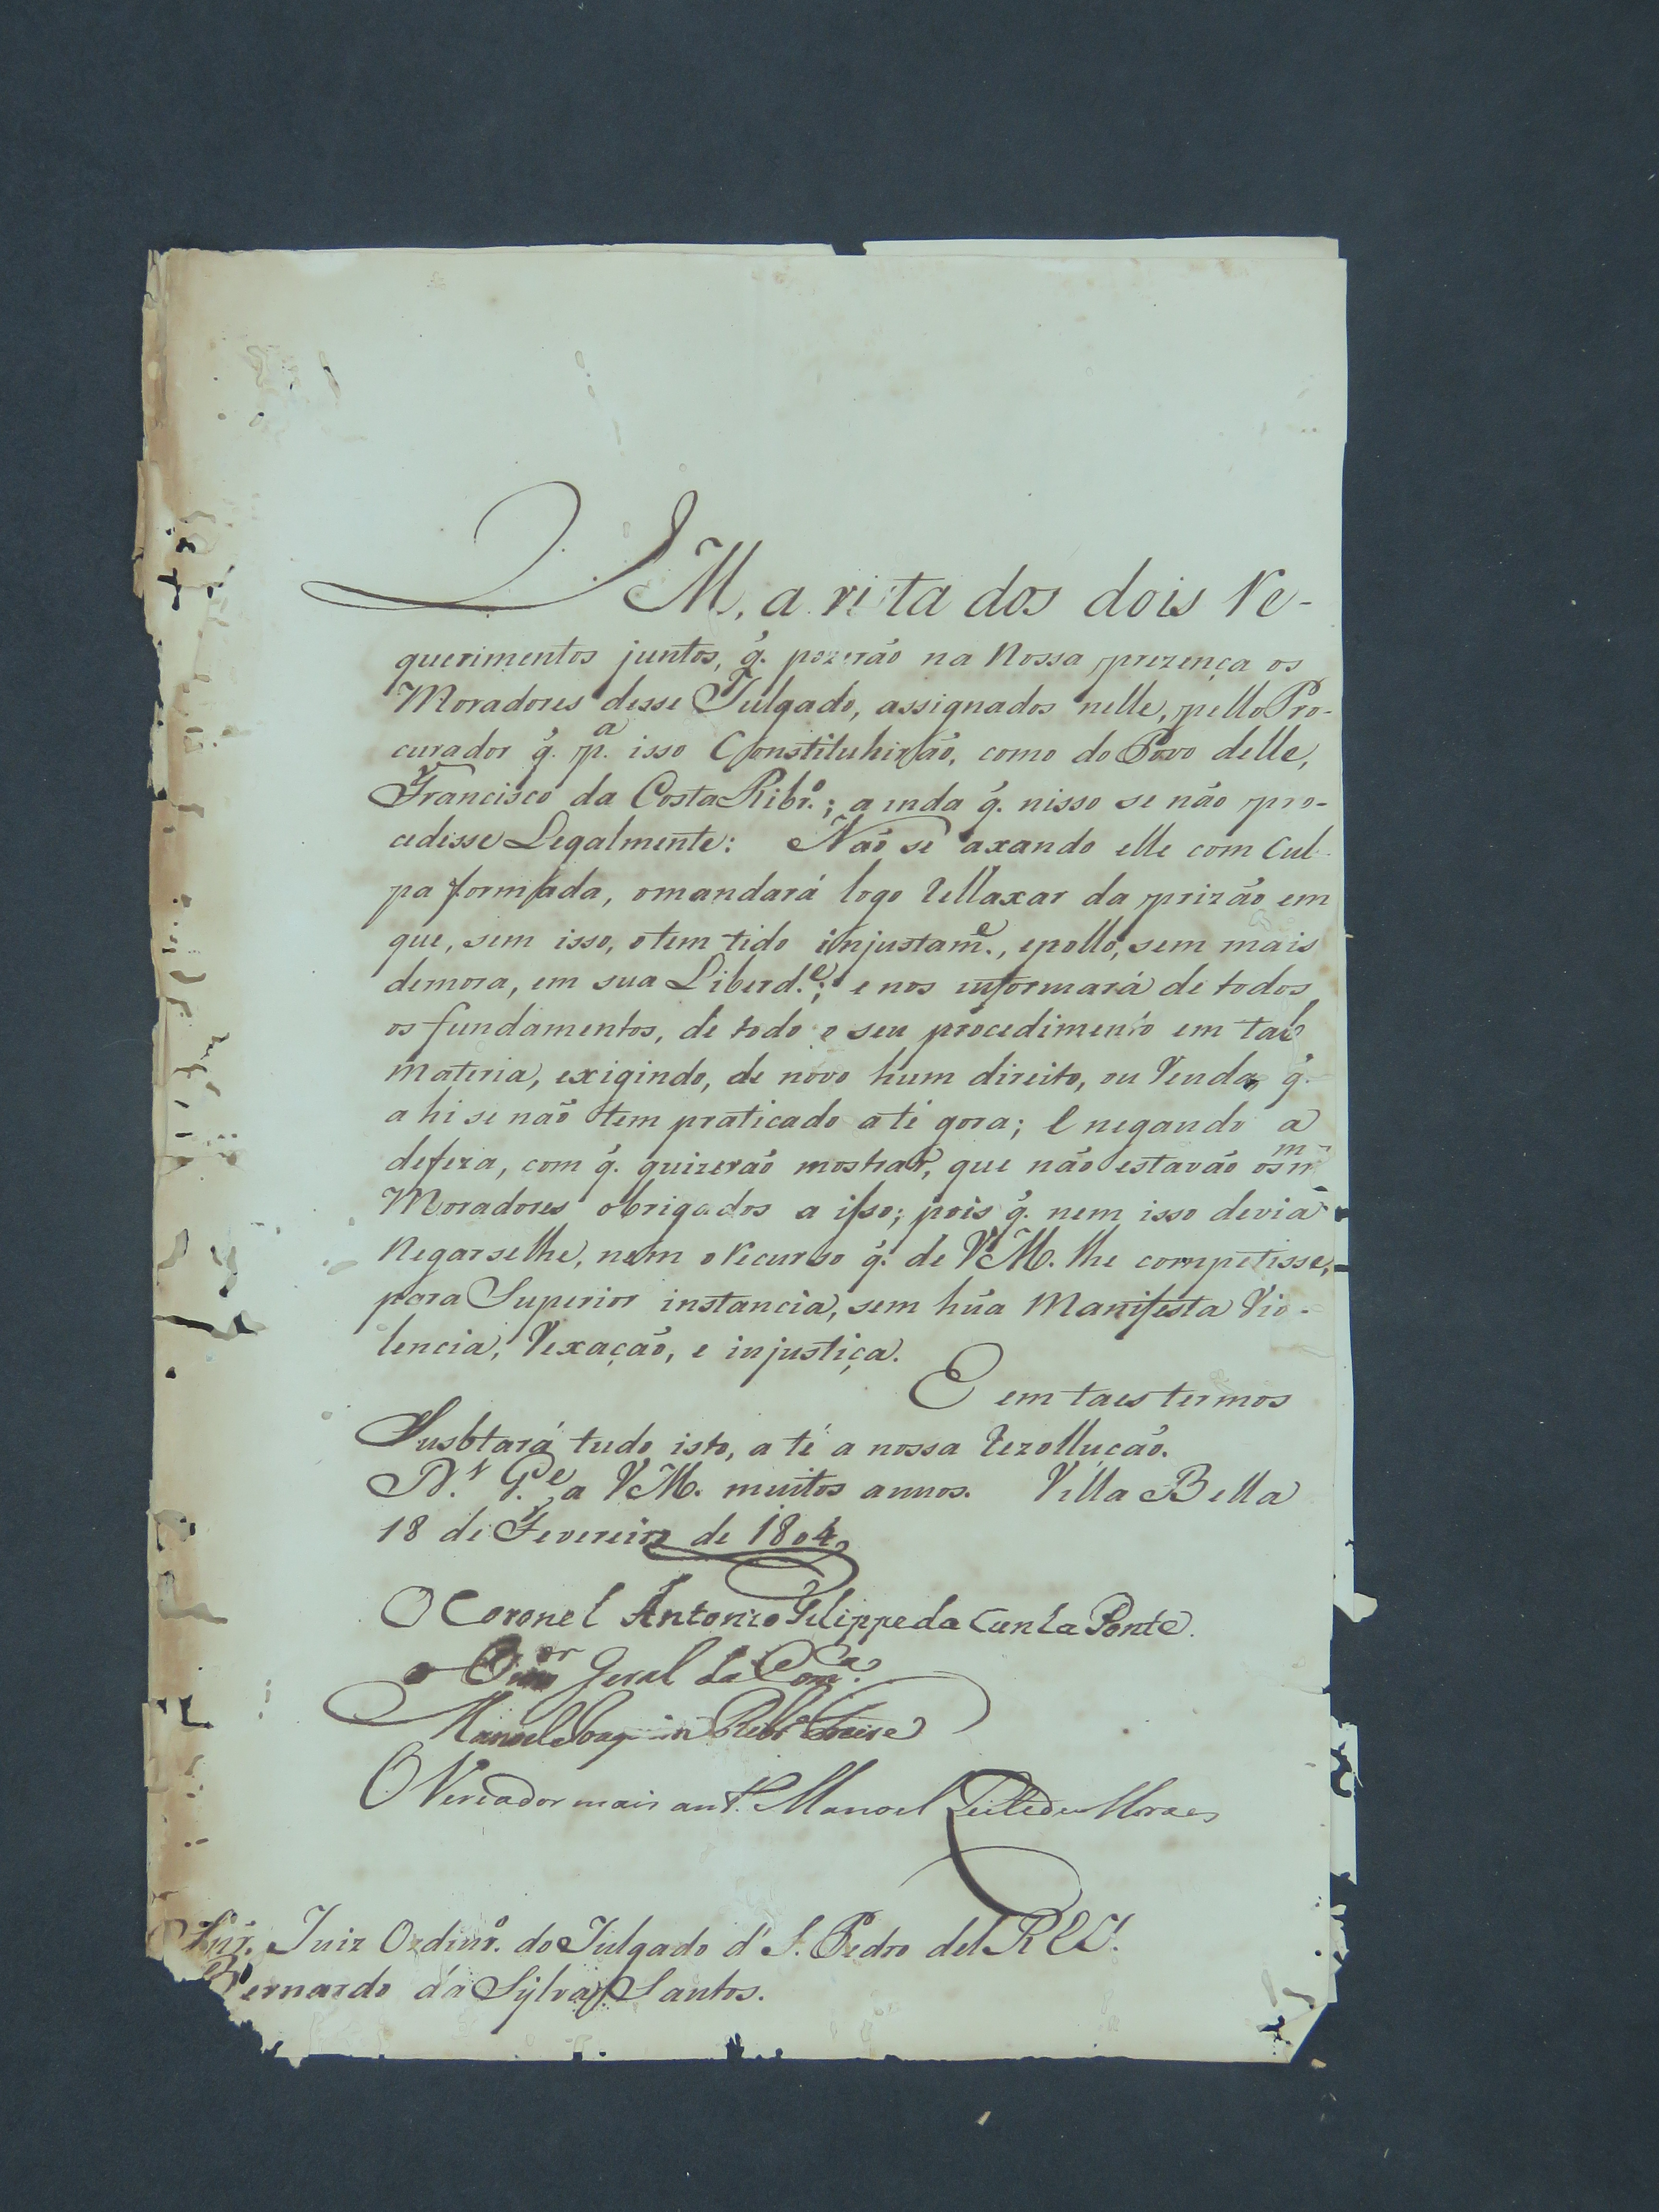 VM. a vista dos dois Re-
querimentos juntos, q̃. pozerão na Nossa prezença os
Moradores desse Julgado, assignados nelle, pello Pro-
curador q̃. p.ª isso Constituhirão, como do Povo delle,
Francisco da Costa Ribr.º; ainda q̃. nisso se não pro-
cedesse Legalmente: Não se axando elle com Cul-
pa formada, o mandará logo Rellaxar da prizão em
que, sem isso, o tem tido injustam.e, e pollo, sem mais
demora, em sua Liberd.e; e nos informará de todos
os fundamentos, de todo o seu procedimento em tal
materia, exigindo, de novo hum direito, ou Venda, q̃.
ahi se não tem praticado ate gora; e negando a
defeza, com q̃. quizerão mostrar, que não estavão os m
Moradores obrigados a isso; pois q̃. nem isso devia
Negarselhe, nem o recurso q̃. de VM. lhe competisse,
para Superior instancia, sem hũa Manifesta Vio-
lencia, Vexação, e injustiça.
E em taes termos
Susbtará tudo isto, até a nossa Rezollução.
D.s G.e a VM. muitos annos. Villa Bella
18 de Fevereiro de 1804
O Coronel Antonio Filippe da Cunha Ponte.
o Ouv.or Geral da Com.ca
Manoel Joaquim Ribr.o Freire
O Vereador mais ant.º Manoel Leite de Moraes
Snr. Juiz Ordinr.º do Julgado d' S. Pedro del REY.
Bernardo da Sylva Santos.